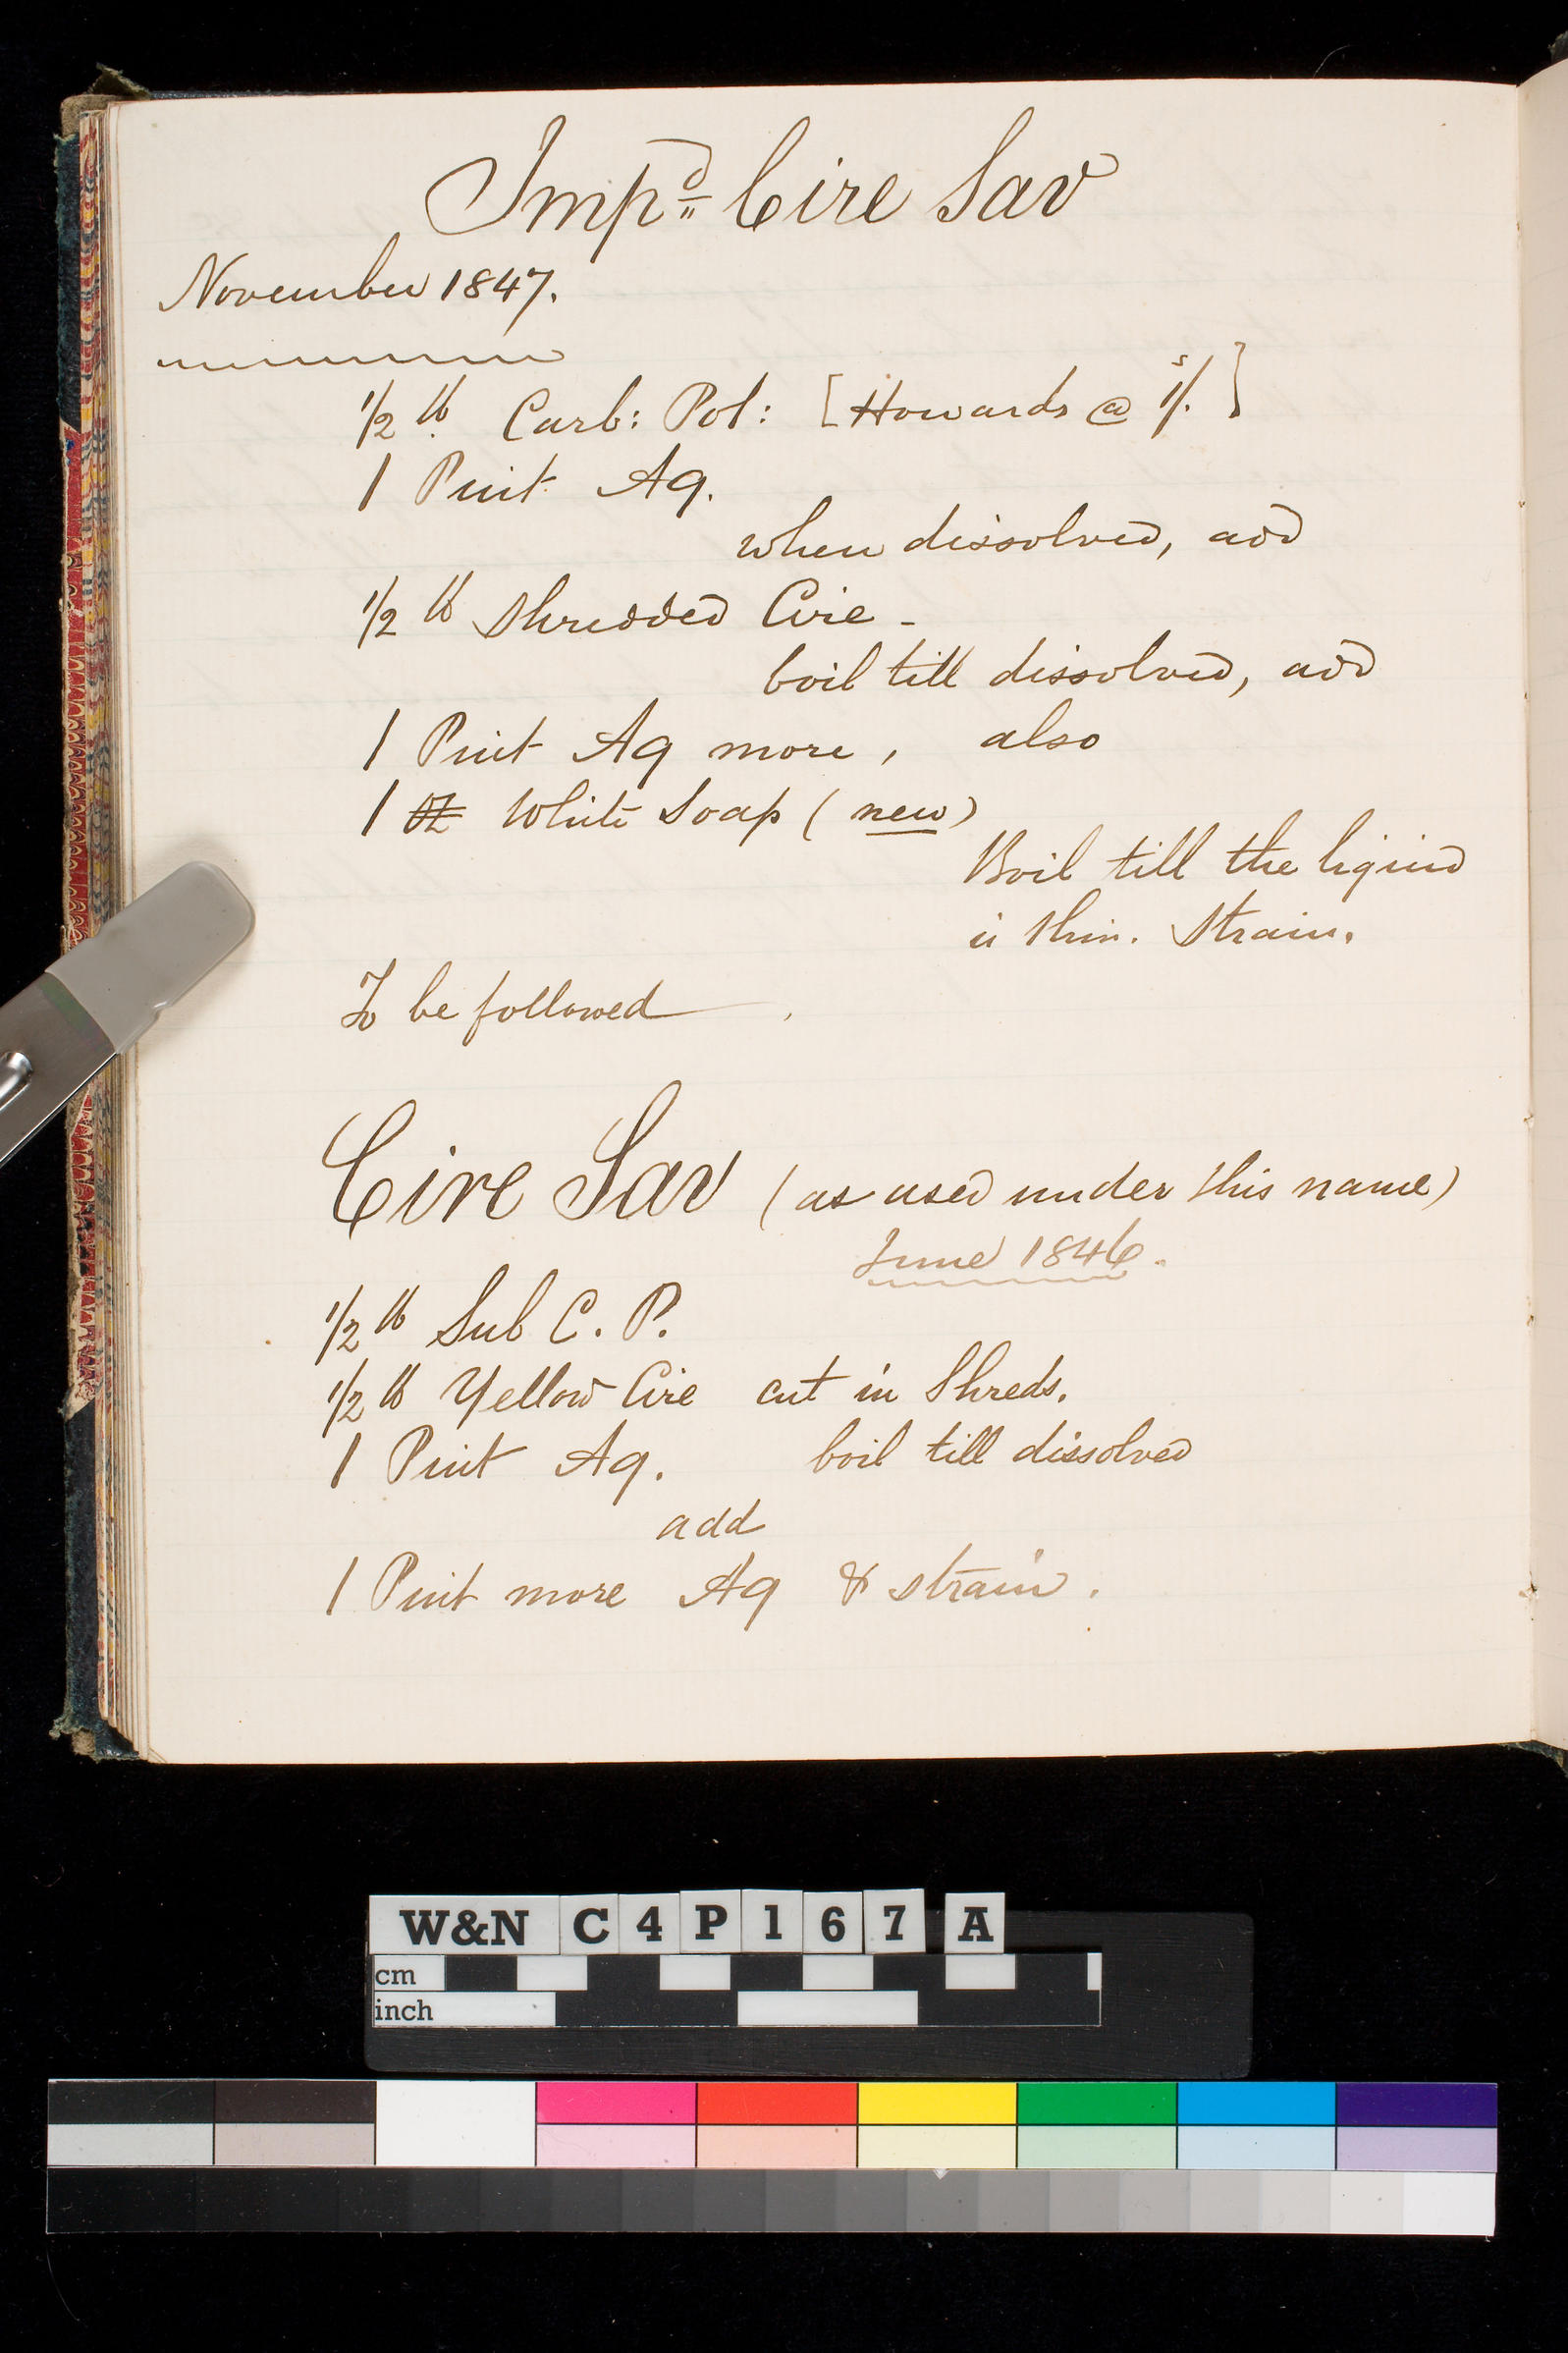 Impd Cire Sav
November 1847.
1/2 lb Carb: Pot: [Howards @ 1s/. ]
1 Pint Aq.
when dissolved, add
1/2 lb Shredded Cire -
boil till dissolved, add
1 Pint Aq more, also
1 oz White Soap (new)
Boil till the liquid
is thin. Strain.
To be followed
Cire Sav (as used under this name)
June 1846.
1/2 lb Sub C. P.
1/2 lb Yellow Cire cut in Shreds.
1 Pint Aq. boil till dissolved
add
1 Pint more Aq & strain.
W&N C4P167 A
cm
inch